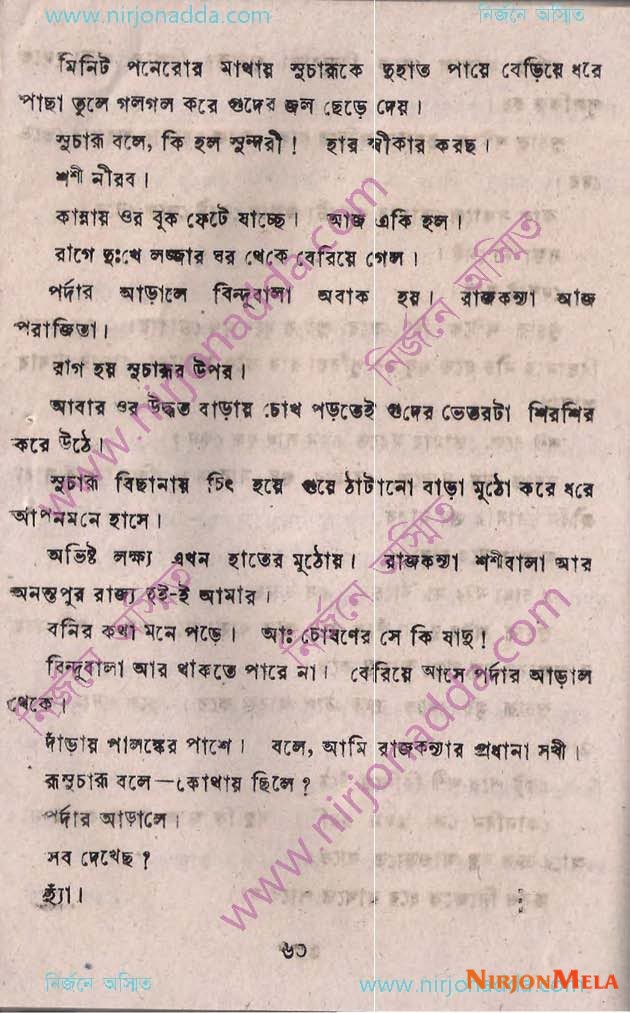 www.nirjonadda.com নির্জনে অস্মিত
মিনিট পনেরোর মাথায় সুচারুকে দুহাত পায়ে বেড়িয়ে ধরে
পাছা তুলে গলগল করে গুদের জল ছেড়ে দেয়।
সুচারু বলে, কি হল সুন্দরী! হার স্বীকার করছ।
শশী নীরব।
কান্নায় ওর বুক ফেটে যাচ্ছে। আজ একি হল।
রাগে দুঃখে লজ্জার ঘর থেকে বেরিয়ে গেল।
পর্দার আড়ালে বিন্দুবালা অবাক হয়। রাজকন্যা আজ
পরাজিতা।
রাগ হয় সুচারুর উপর।
আবার ওর উদ্ধত বাড়ায় চোখ পড়তেই গুদের ভেতরটা শিরশির
করে উঠে।
সুচারু বিছানায় চিৎ হয়ে শুয়ে ঠাটানো বাড়া মুঠো করে ধরে
আপনমনে হাসে।
অভিষ্ট লক্ষ্য এখন হাতের মুঠোয়। রাজকন্যা শশীবালা আর
অনন্তপুর রাজ্য দুই-ই আমার।
বনির কথা মনে পড়ে। আঃ চোষণের সে কি যাদু!
বিন্দুবালা আর থাকতে পারে না। বেরিয়ে আসে পর্দার আড়াল
থেকে।
দাঁড়ায় পালঙ্কের পাশে। বলে, আমি রাজকন্যার প্রধানা সখী।
রূসুচারু বলে—কোথায় ছিলে?
পর্দার আড়ালে।
সব দেখেছ?
হ্যাঁ।
৬০
নির্জনে অস্মিত www.nirjonadda.com NIRJONMELA
www.nirjonadda.com
নির্জনে অস্মিত
নির্জনে অস্মিত
নির্জনে অস্মিত
www.nirjonadda.com